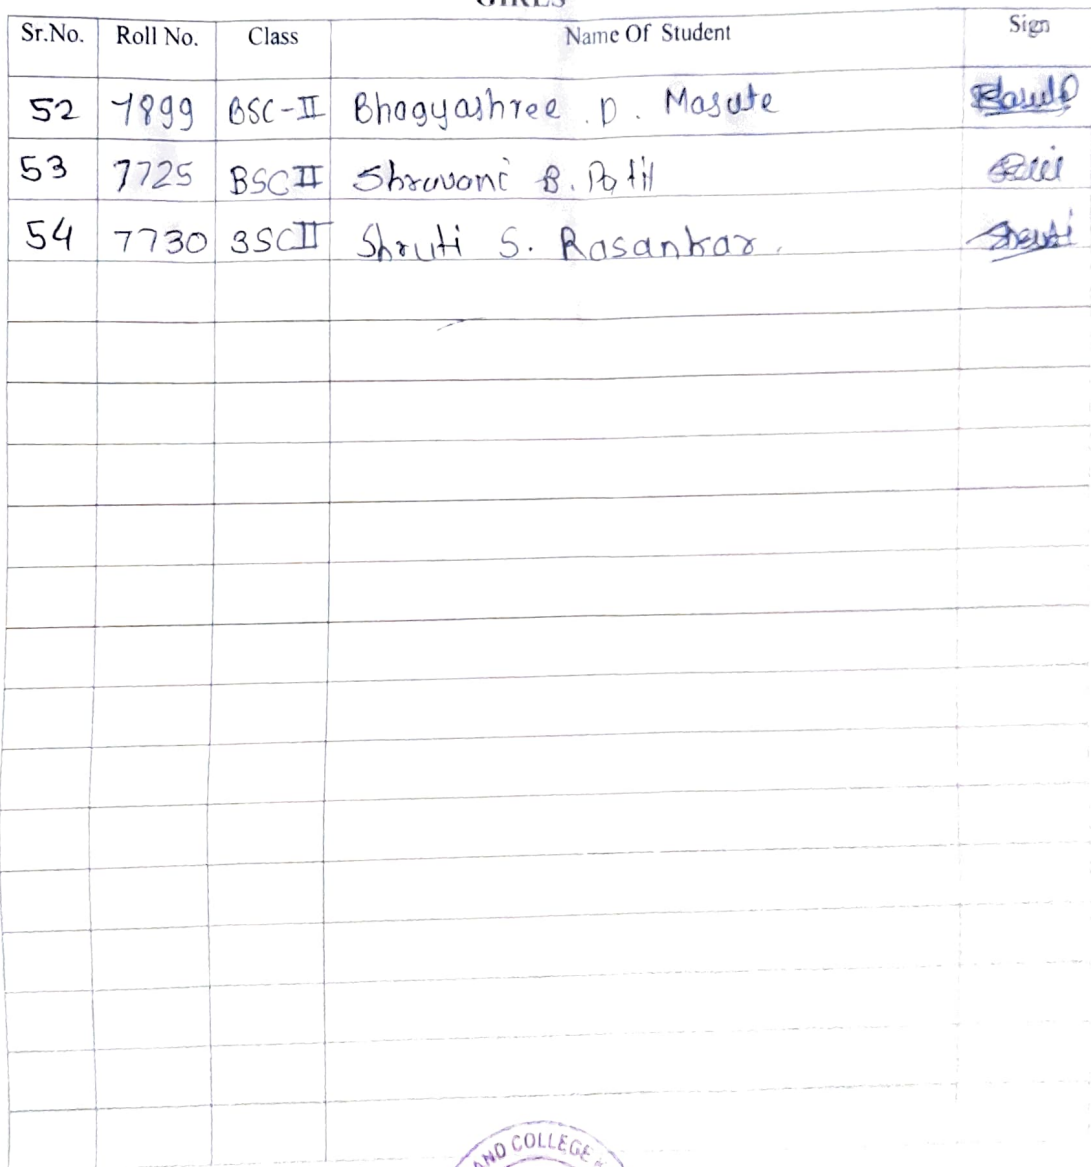 GIRLS
Sr.No. Roll No. Class Name Of Student Sign
52 7899 BSC-II Bhagyashree .D. Masute
53 7725 BSCII Shravani B. Patil
54 7730 BSCII Shruti S. Rasankar. Shruti
AND COLLEGE